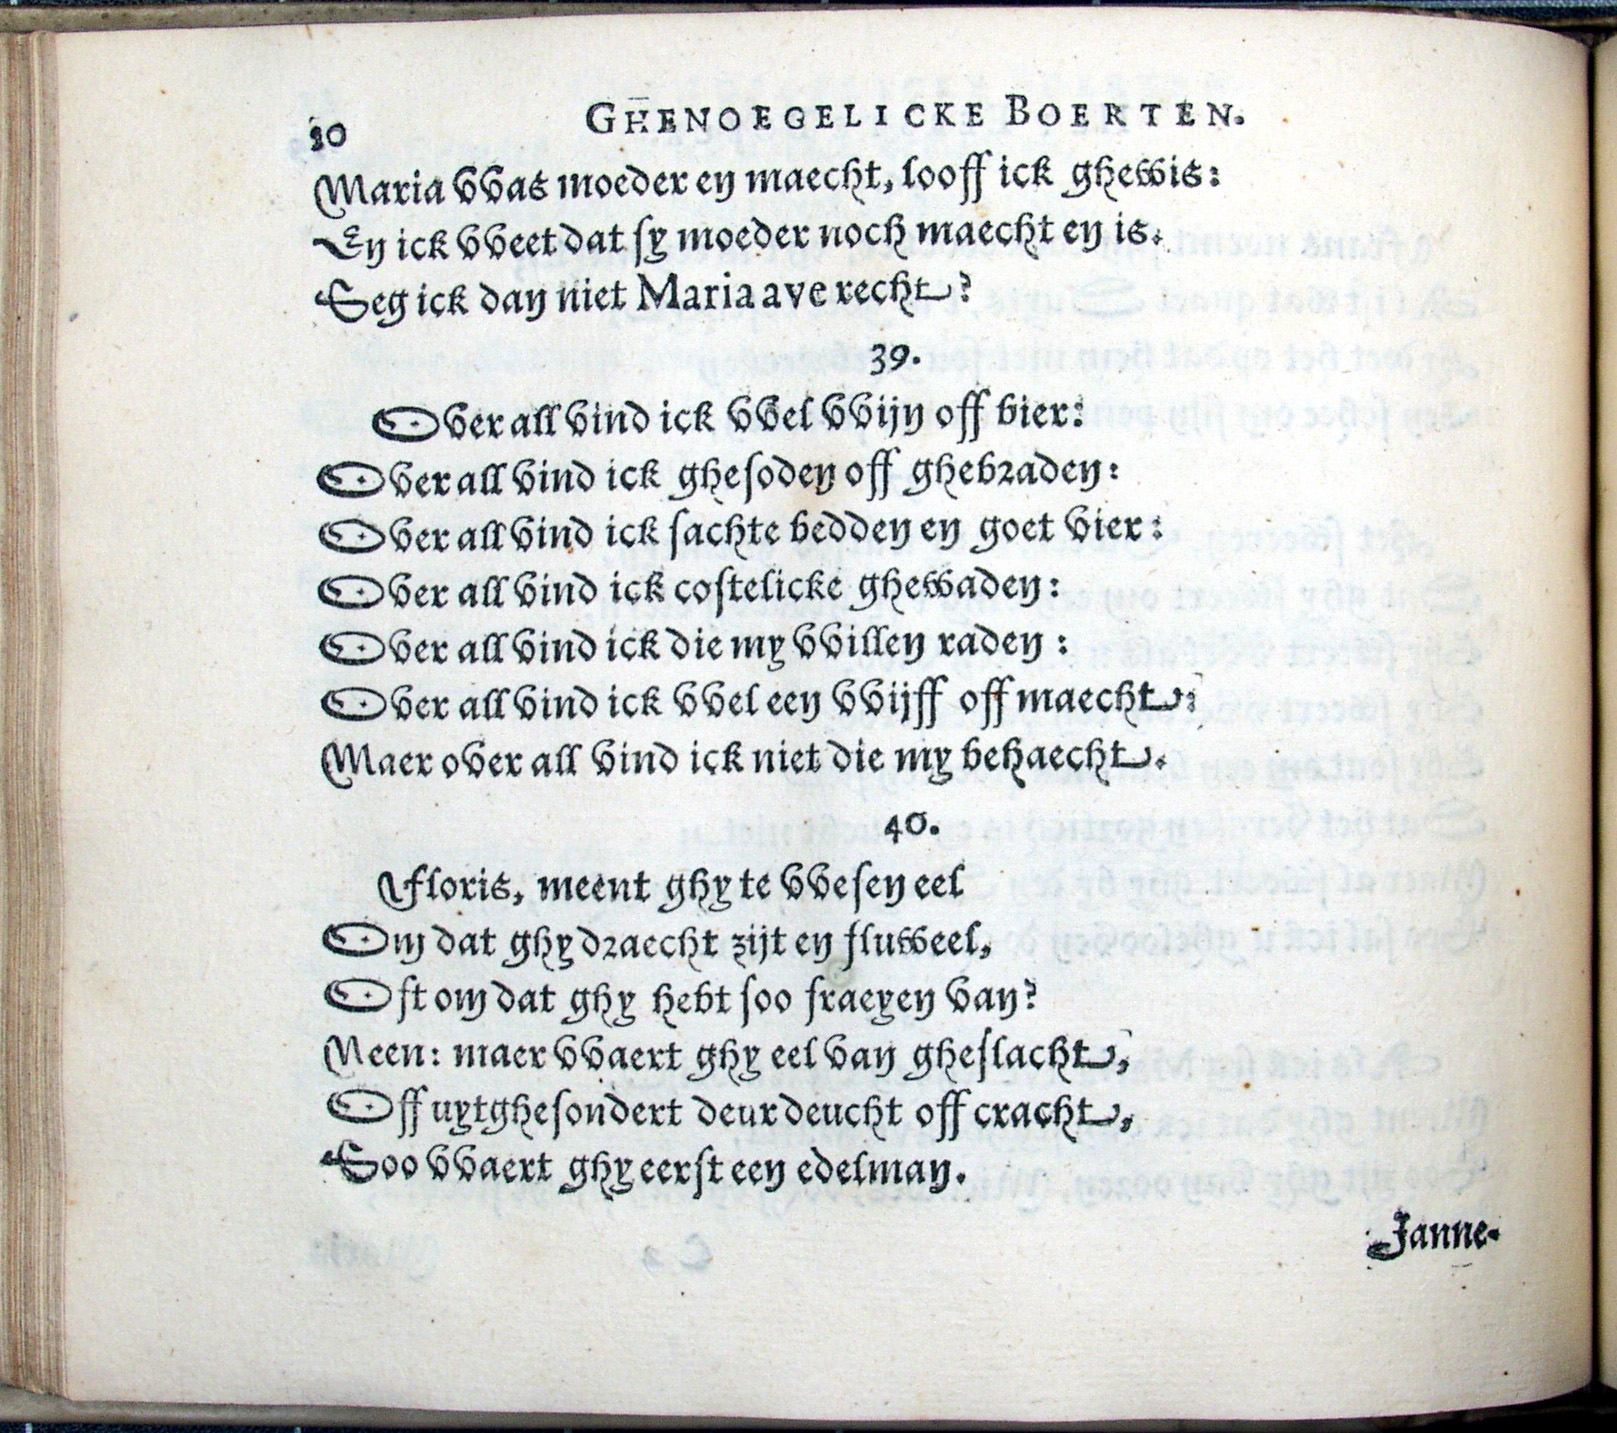 30 GHENOEGELICKE BOERTEN.
Maria vvas moeder en maecht, looff ick ghewis:
En ick vveet dat sy moeder noch maecht en is.
Seg ick dan niet Maria ave recht?
39.
Over all vind ick vvel vvijn off bier:
Over all vind ick ghesoden off ghebraden:
Over all vind ick sachte bedden en goet vier:
Over all vind ick costelicke ghewaden:
Over all vind ick die my vvillen raden:
Over all vind ick vvel een vvijff off maecht:
Maer over all vind ick niet die my behaecht.
40.
Floris, meent ghy te vvesen eel
Om dat ghy draecht zijt en fluweel,
Oft om dat ghy hebt soo fraeyen van?
Neen: maer vvaert ghy eel van gheslacht,
Off uytghesondert deur deucht off cracht,
Soo vvaert ghy eerst een edelman.
Janne-